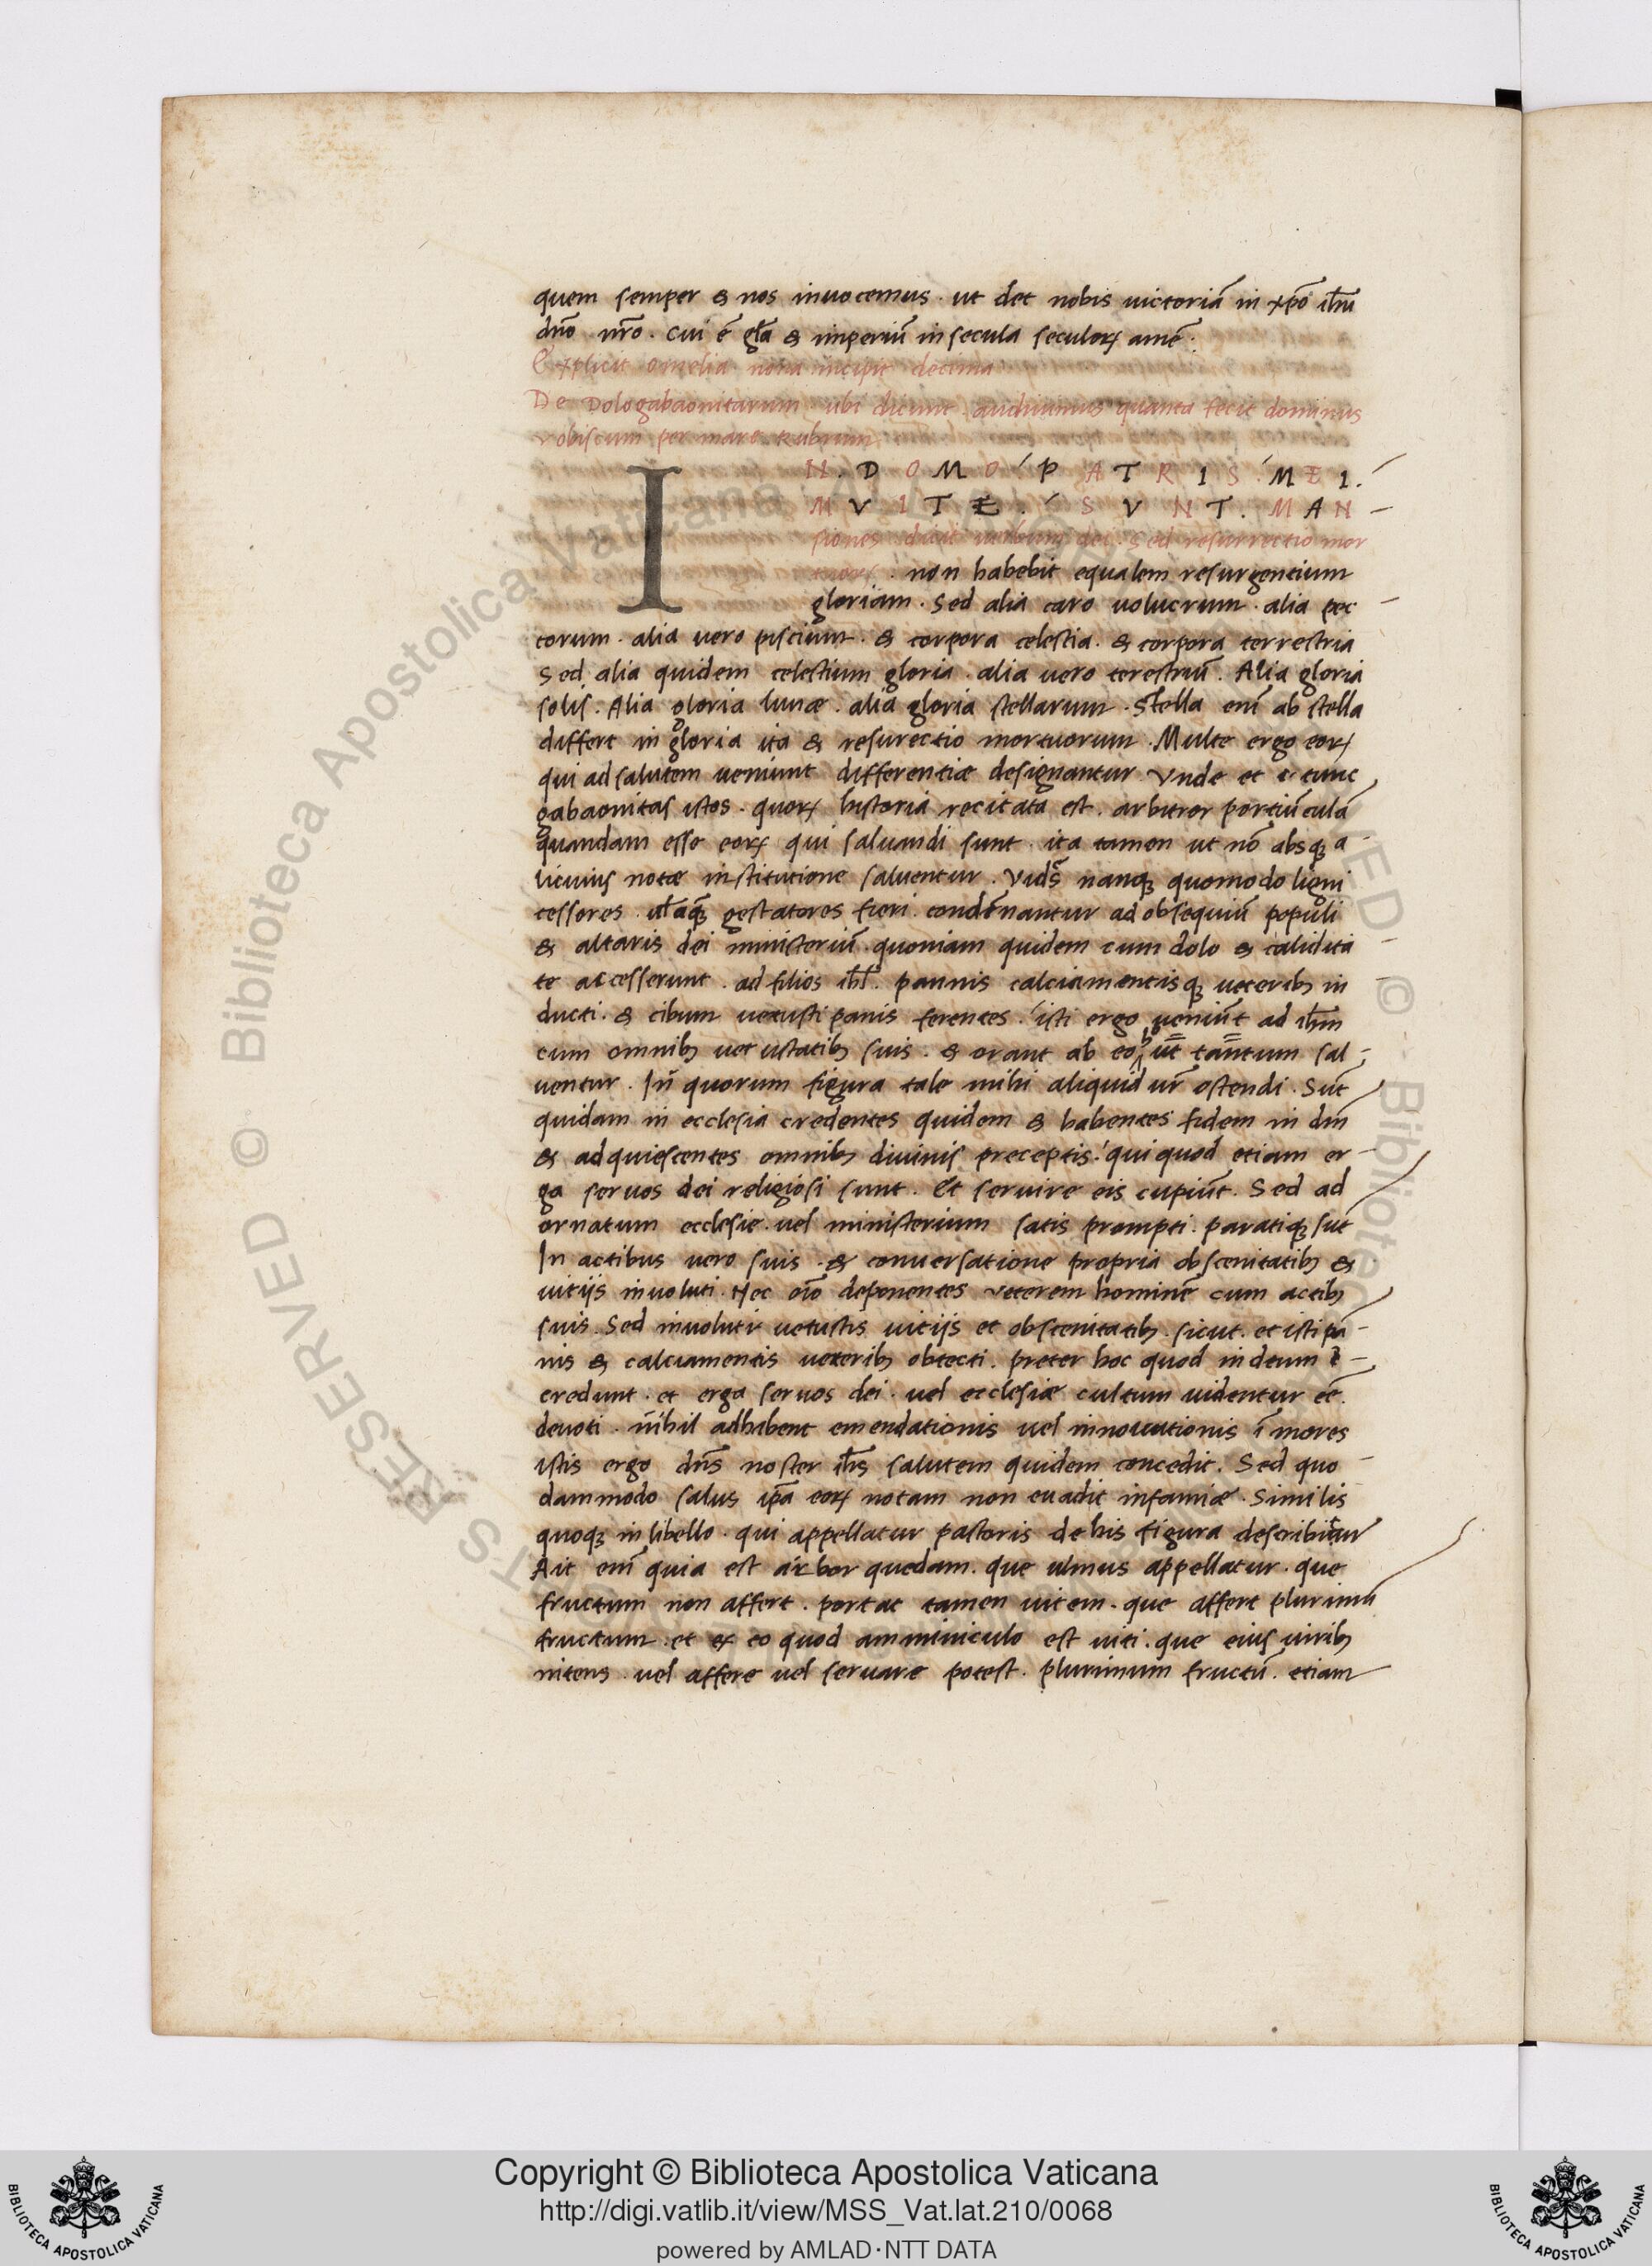 quem semper & nos inuocemus. ut det nobis uictoriā in xp̄o ih̄u
dn̄o nr̄o. cui ē gl̄a & imperiū in secula seculoꝝ amē.
Explicit omelia nona incipit decima
De Dologabaonitarum ubi dicunt audiuimus quanta fecit dominus
vobiscum per mare Rubrum
IN. DOMO PATRIS MEI.
MVLTE. SVNT. MAN
siones dicit uerbum dei. Sed resurrectio mor
tuoꝝ. non habebit equalem resurgentium
gloriam. Sed alia caro uolucrum. alia pec
torum. alia vero piscium. & corpora celestia. & corpora terrestria
Sed alia quidem celestium gloria. alia uero terestriū. Alia gloria
solis. Alia gloria lunæ. alia gloria stellarum. Stella eni̅ ab stella
differt in gloria ita & resurectio mortuorum. Multe ergo eoꝝ
qui ad salutem ueniunt differentiæ designantur Vnde et tunc
gabaonitas istos. quoꝝ historia recitata est. arbitror portiūculā
quandam esse eoꝝ qui saluandi sunt. ita tamen ut nō absqꝫ a
licuius notæ institutione saluentur. Vides̄ nanqꝫ quomodo ligni
cessores ul̄ aqꝫ gestatores fieri condēnantur ad obsequiū populi
& altaris dei ministeriū quoniam quidem cum dolo & calidita
te accesserunt. ad filios ih̄l. pannis calciamentisqꝫ ueteribꝫ in
ducti. & cibum uetusti panis ferentes. isti ergo ueniūt ad ih̄m
cum omnibꝫ uetustatibꝫ suis. & orant ab eo ut tantum sal
uentur. In quorum figura tale mihi aliquid ur̄ ostendi. Sūt
quidam in ecclesia credentes quidem & habentes fidem in dm̄
& adquiescentes omnibꝫ diuinis preceptis. qui quod etiam er
ga seruos dei religiosi sunt. Et seruire eis cupiūt. Sed ad
ornatum ecclesie. uel ministerium satis prompti. paratiqꝫ sūt
In actibus uero suis. & conuersatione propria obscenitatibꝫ &
uitijs inuoluti. Nec oīo deponentes veterem hominē cum actibꝫ
suis. Sed inuoluti uetustis uitijs et obscenitatibꝫ. sicut. et isti pā
nis & calciamentis ueteribꝫ obtecti. preter hoc quod in deum
credunt. et erga seruos dei. uel ecclesiæ cultum uidentur eē.
deuoti. nihil adhibent emendationis uel innouationis ī mores
istis ergo dn̄s noster ih̄s salutem quidem concedit. Sed quo
dammodo salus ip̄a eoꝝ notam non euadit infamiæ. Similis
quoqꝫ in libello. qui appellatur pastoris de his figura describitur
Ait eni̅ quia est arbor quedam. que ulmus appellatur. que
fructum non affert. portat tamen uitem. que affert plurimū
fructum. et ex eo quod amminiculo est uiti. que eius uiribꝫ
nitens. uel affere uel seruare potest. plurimum fructū. etiam
RESERVED © Biblioteca Apostolica Vaticana
Copyright © Biblioteca Apostolica Vaticana
http://digi.vatlib.it/view/MSS_Vat.lat.210/0068
powered by AMLAD·NTT DATA
BIBLIOTECA APOSTOLICA VATICANA
BIBLIOTECA APOSTOLICA VATICANA